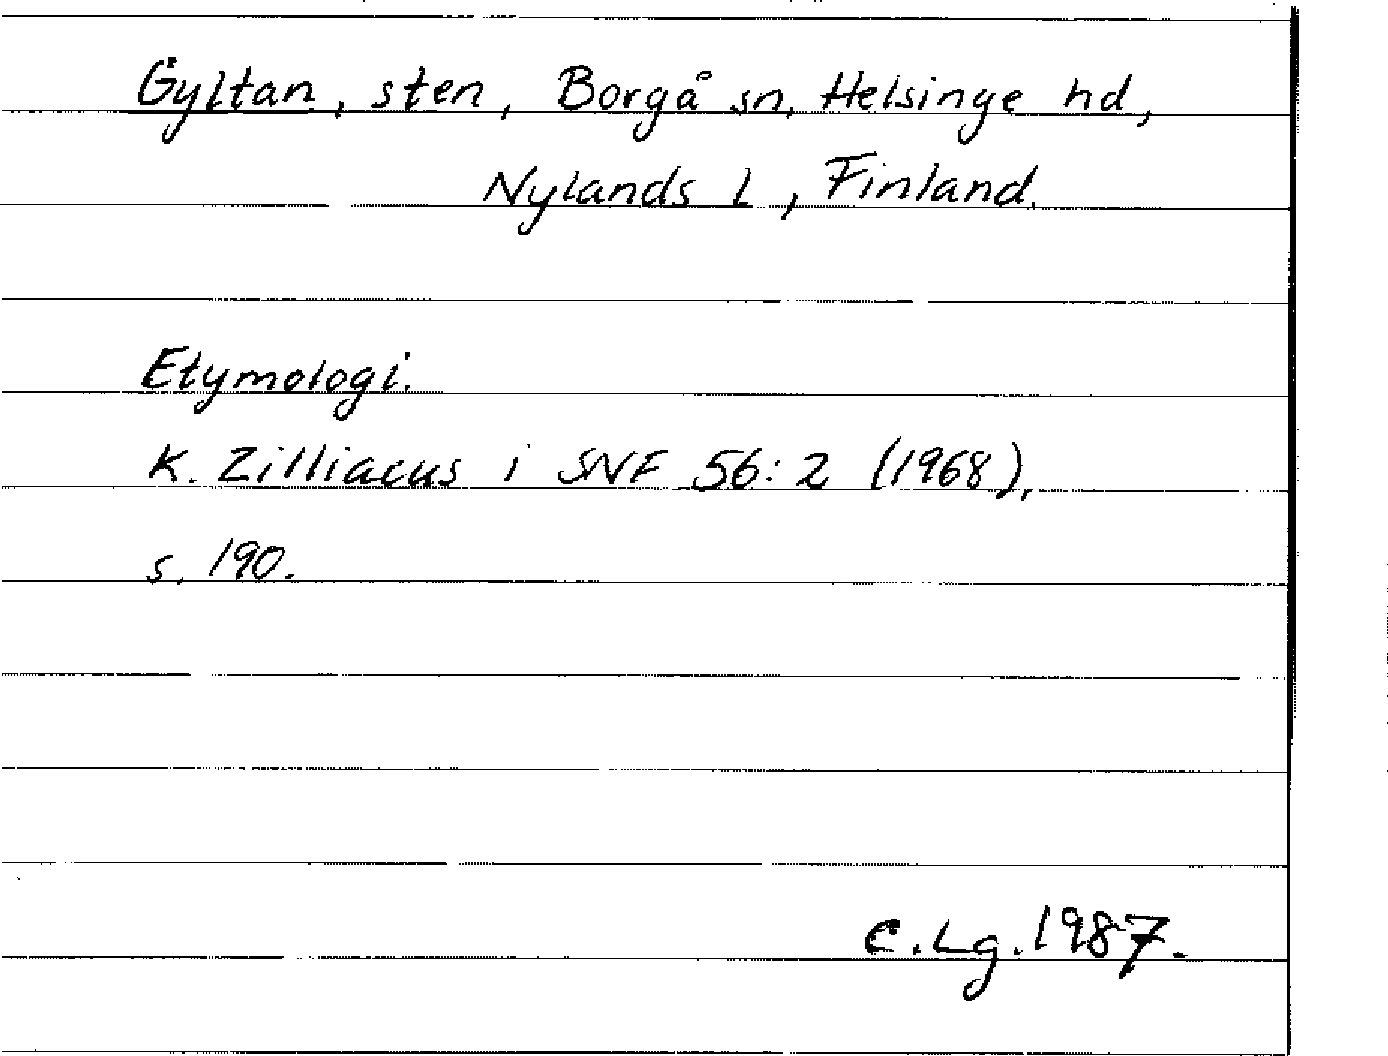 Gyltan, sten, Borgå sn, Helsinge hd,
Nylands l, Finland.
Etymologi.
K. Zilliacus i SNF 56:2 (1968),
s. 190.
C.Lg.1987.